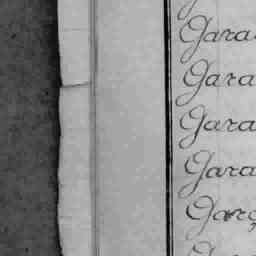 Gara
Gara
Gara
Gara
Garç